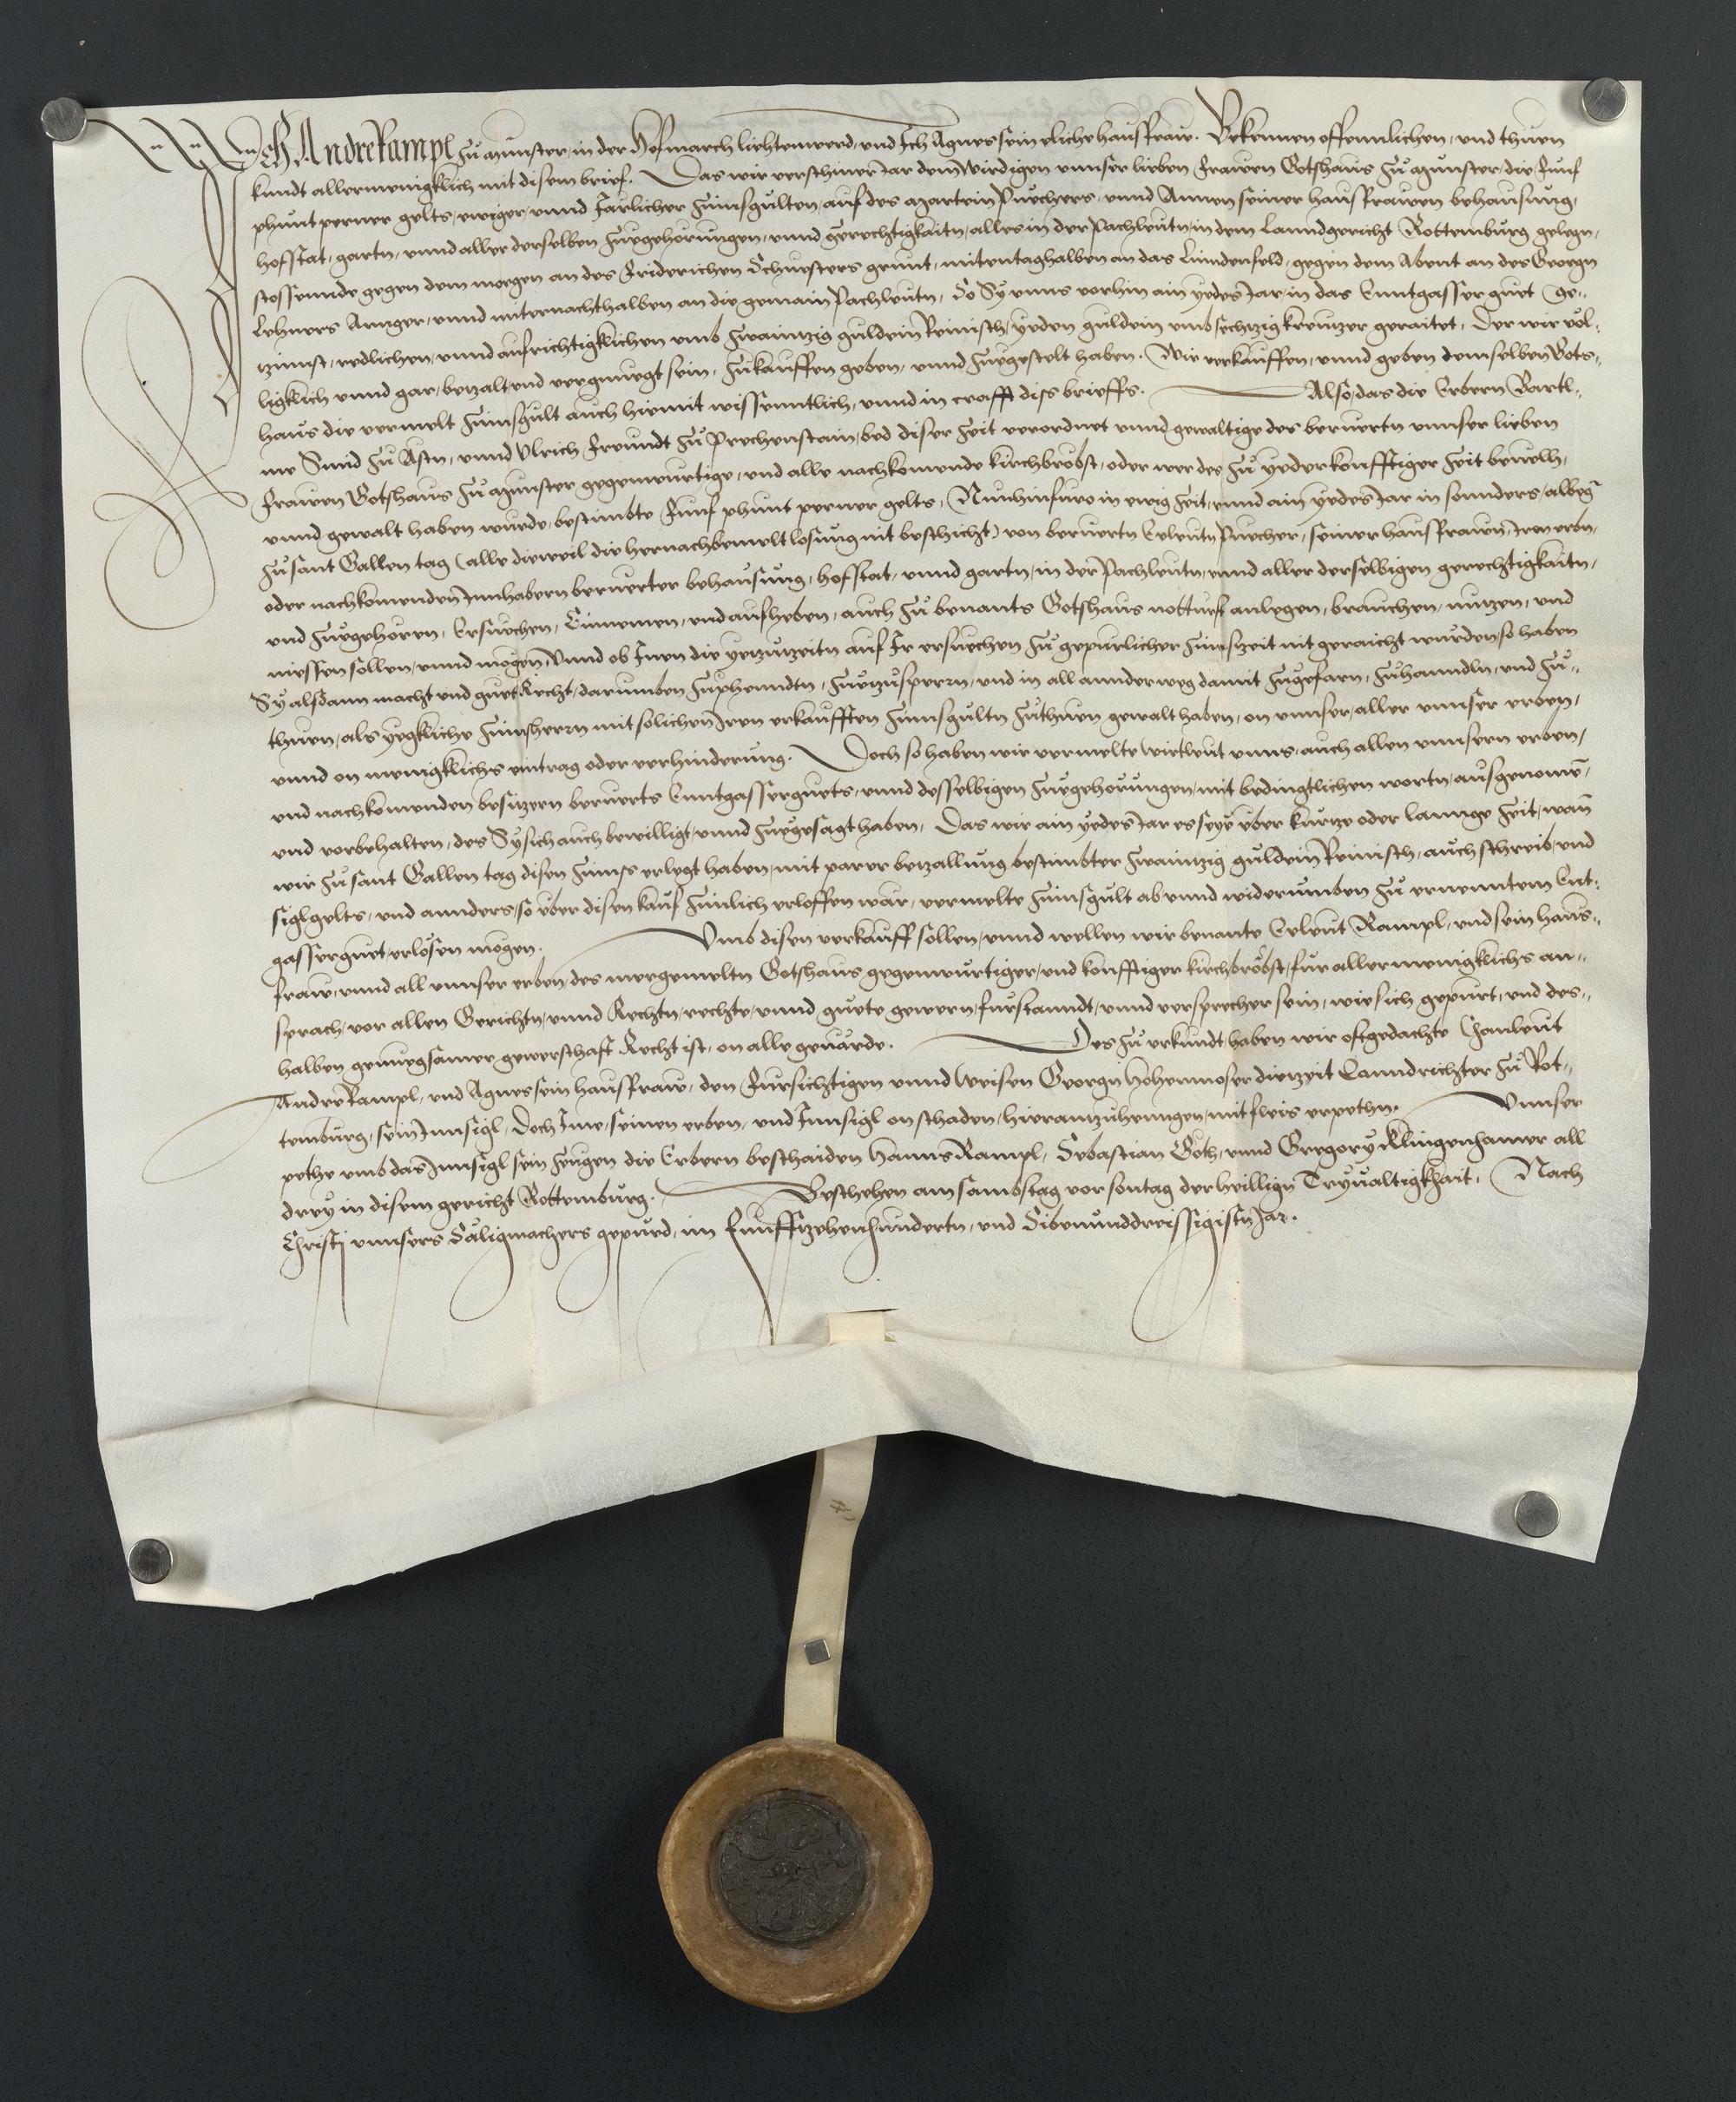 Ich Andre Rampl zu Munster, in der Hofmarch liechtenwerd, vnd Ich Agnes sein eliche hausfraw. Bekennen offennlichen, vnd thuen
kundt allermenigklich mit disem brief. Das wir verschiner Jar dem wirdigen vnnser lieben frawen Gotshaus zu Munster, die funf
phunt perner gelts, ewiger, vnnd Jarlicher zinnsgulten, auf des Martein Puechers, vnnd Annen seiner hausfrawen behausung,
hofstat, gartn, vnnd aller derselben zuegehorungen, vnnd gerechtigkaitn, alles in der Pachleutn, in dem Lanndgericht Rottemburg gelegn,
stossennde gegen dem morgen an des Friderichen Schuesters grunt, mitentaghalben an das Lindenfeld, gegen dem Abent an des Georgn
Lehners Annger, vnnd miternachthalben an die gemain Pachleutn, So Sy vnns vorhin ain yedes Jar, in das Enntgasser guet ge-
tzinnst, redlichen, vnnd aufrichtigklichen vmb zwaintzig guldein Reinisch, yeden guldein vmb sechtzig kreutzer geraitet, Der wir vol-
ligklich vnnd gar, betzalt vnd vergnuegt sein, zukauffen geben, vnnd zuegestelt haben. Wir verkauffen, vnnd geben demselben Gots-
haus die vermelt zinnsgult auch hiemit wissenntlich, vnnd in crafft diss brieffs. Also, das die Erbern Bartl-
me Smid zu Astn, vnnd Vlrich Freundt zu Prechenstain, bed diser zeit verordnet vnnd gewaltige des beruertn vnnser lieben
frawen Gotshaus zu Munster gegenwurtige, vnd alle nachkomende kirchbrobst, oder wer des zu yeder konfftiger zeit beuelh,
vnnd gewalt haben wurde, bestimbte funf phunt perner gelts, Nun hinfuro in ewig zeit, vnnd ain yedes Jar in sonnders, albeg
zu sant Gallen tag (alle dieweil die hernachbemelt losung nit beschicht) von beruertn Eeleutn Puecher, seiner hausfrawen, Iren erbn,
oder nachkomenden Innhabern beruerter behausung, hofstat, vnnd gartn, in der Pachleutn, vnnd aller derselbigen gerechtigkaitn,
vnd zuegehoren, Ersuechen, Einnemen, vnd aufheben, auch zu benants Gotshaus notturft anlegen, brauchen, nutzen, vnd
niessen sollen, vnnd mogen, Vnnd ob Inen die yetzutzeitn auf Ir ersuechen zu gepurlicher zinnszeit nit geraicht wurden, so haben
Sy alsdann macht vnd guet Recht, darumben zuphenndtn, zuetzusperrn, vnd in all annder weg damit zugefarn, zuhanndln, vnd zu-
thuen, als yegkliche zinnsherrn mit solichen Iren erkaufften zinnsgultn zuthuen gewalt haben, on vnnser, aller vnnser erben,
vnnd on menigklichs eintrag oder verhinderung. Doch so haben wir vermelte wirtleut vnns, auch allen vnnsern erben,
vnd nachkomenden besitzern beruerts Enntgasserguets, vnnd desselbigen zuegehorungen, mit bedingtlichen wortn, ausgenomen,
vnd vorbehalten, des Sy sich auch bewilligt, vnnd zuegesagt haben, Das wir ain yedes Jar es seye uber kurtze oder lannge zeit, wan
wir zu sant Gallen tag disen zinns erlegt haben, mit parer betzallung bestimbter zwaintzig guldein Reinisch, auch schreib, vnd
siglgelts, vnd annders, so uber disen kauf zimlich erloffen war, vermelte zinnsgult ab vnnd widerumben zu ernenntem Ent-
gasserguet, erlosen mogen. Vmb disen verkauff sollen, vnnd wellen wir benante Eeleut Rampl, vnd sein haus-
fraw, vnnd all vnnser erben, des mergemeltn Gotshaus gegenwurtiger, vnd konfftiger kirchbrobst, fur allermenigklichs an-
sprach, vor allen Gerichtn, vnnd Rechtn, rechte, vnnd guete gewern, furstanndt, vnnd versprecher sein, wie sich gepurt, vnd des-
halben genuegsamer gewerschaft Recht ist, on alle geuarde. Des zu vrkundt, haben wir oftgedachte Conleut
Andre Rampl, vnd Agnes sein hausfraw, den fursichtigen vnnd weisen Georgn Hohenmoser dietzeit Lanndrichter zu Rot-
temburg, sein Innsigl, Doch Ime, seinen erben, vnd Innsigl on schaden, hierantzuhenngen, mit fleis erpethn. Vnnser
pethe vmb das Innsigl sein zeugen die Erbern beschaiden Hanns Rampl, Sebastian Goth, vnnd Gregory Klingenhamer all
drey in disem gericht Rottemburg. Beschehen am sambstag vor sontag der heillign Dryualtigkhait, Nach
Christi vnnsers Saligmachers gepurd, im funfftzehenhundertn, vnd Sibenunddreissigistn Jar.